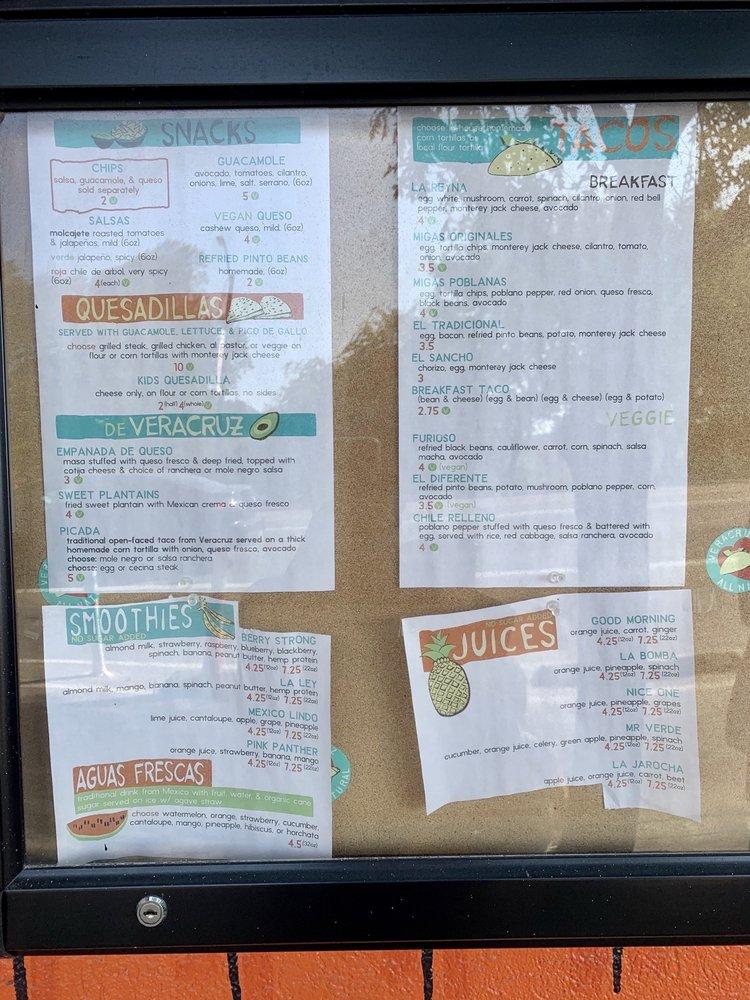 SNACKS
CHIPS
salsa, guacamole, & queso
sold separately
2 V
GUACAMOLE
avocado, tomatoes, cilantro,
onions, lime, salt, serrano, (6oz)
5 V
SALSAS
molcajete roasted tomatoes
& jalapeños, mild (6oz)
verde jalapeño, spicy (6oz)
roja chile de arbol, very spicy
(6oz)
4(each) V
VEGAN QUESO
cashew queso, mild, (6oz)
4 V
REFRIED PINTO BEANS
homemade, (6oz)
2 V
QUESADILLAS
SERVED WITH GUACAMOLE, LETTUCE, & PICO DE GALLO
choose grilled steak, grilled chicken, al pastor, or veggie on
flour or corn tortillas with monterey jack cheese
10 V
KIDS QUESADILLA
cheese only, on flour or corn tortillas, no sides
2(half) 4(whole) V
DE VERACRUZ
EMPANADA DE QUESO
masa stuffed with queso fresco & deep fried, topped with
cotija cheese & choice of ranchera or mole negro salsa
3 V
SWEET PLANTAINS
fried sweet plantain with Mexican crema & queso fresco
4 V
PICADA
traditional open-faced taco from Veracruz served on a thick
homemade corn tortilla with onion, queso fresco, avocado
choose: mole negro or salsa ranchera
choose: egg or cecina steak
5 V
TACOS
choose in-house homemade
corn tortillas or
local flour tortilla
BREAKFAST
LA REYNA
egg white, mushroom, carrot, spinach, cilantro, onion, red bell
pepper, monterey jack cheese, avocado
4 V
MIGAS ORIGINALES
egg, tortilla chips, monterey jack cheese, cilantro, tomato,
onion, avocado
3.5 V
MIGAS POBLANAS
egg, tortilla chips, poblano pepper, red onion, queso fresco,
black beans, avocado
4 V
EL TRADICIONAL
egg, bacon, refried pinto beans, potato, monterey jack cheese
3.5
EL SANCHO
chorizo, egg, monterey jack cheese
3
BREAKFAST TACO
(bean & cheese) (egg & bean) (egg & cheese) (egg & potato)
2.75 V
VEGGIE
FURIOSO
refried black beans, cauliflower, carrot, corn, spinach, salsa
macha, avocado
4 V (vegan)
EL DIFERENTE
refried pinto beans, potato, mushroom, poblano pepper, corn,
avocado
3.5 V (vegan)
CHILE RELLENO
poblano pepper stuffed with queso fresco & battered with
egg, served with rice, red cabbage, salsa ranchera, avocado
4 V
VERACRUZ
ALL N
SMOOTHIES
NO SUGAR ADDED
BERRY STRONG
almond milk, strawberry, raspberry, blueberry, blackberry,
spinach, banana, peanut butter, hemp protein
4.25(12oz) 7.25(22oz)
LA LEY
almond milk, mango, banana, spinach, peanut butter, hemp protein
4.25(12oz) 7.25(22oz)
MEXICO LINDO
lime juice, cantaloupe, apple, grape, pineapple
4.25(12oz) 7.25(22oz)
PINK PANTHER
orange juice, strawberry, banana, mango
4.25(12oz) 7.25(22oz)
AGUAS FRESCAS
traditional drink from Mexico with fruit, water, & organic cane
sugar served on ice w/ agave straw
choose watermelon, orange, strawberry, cucumber,
cantaloupe, mango, pineapple, hibiscus, or horchata
4.5(32oz)
NO SUGAR ADDED
JUICES
GOOD MORNING
orange juice, carrot, ginger
4.25(12oz) 7.25(22oz)
LA BOMBA
orange juice, pineapple, spinach
4.25(12oz) 7.25(22oz)
NICE ONE
orange juice, pineapple, grapes
4.25(12oz) 7.25(22oz)
MR VERDE
cucumber, orange juice, celery, green apple, pineapple, spinach
4.25(12oz) 7.25(22oz)
LA JAROCHA
apple juice, orange juice, carrot, beet
4.25(12oz) 7.25(22oz)